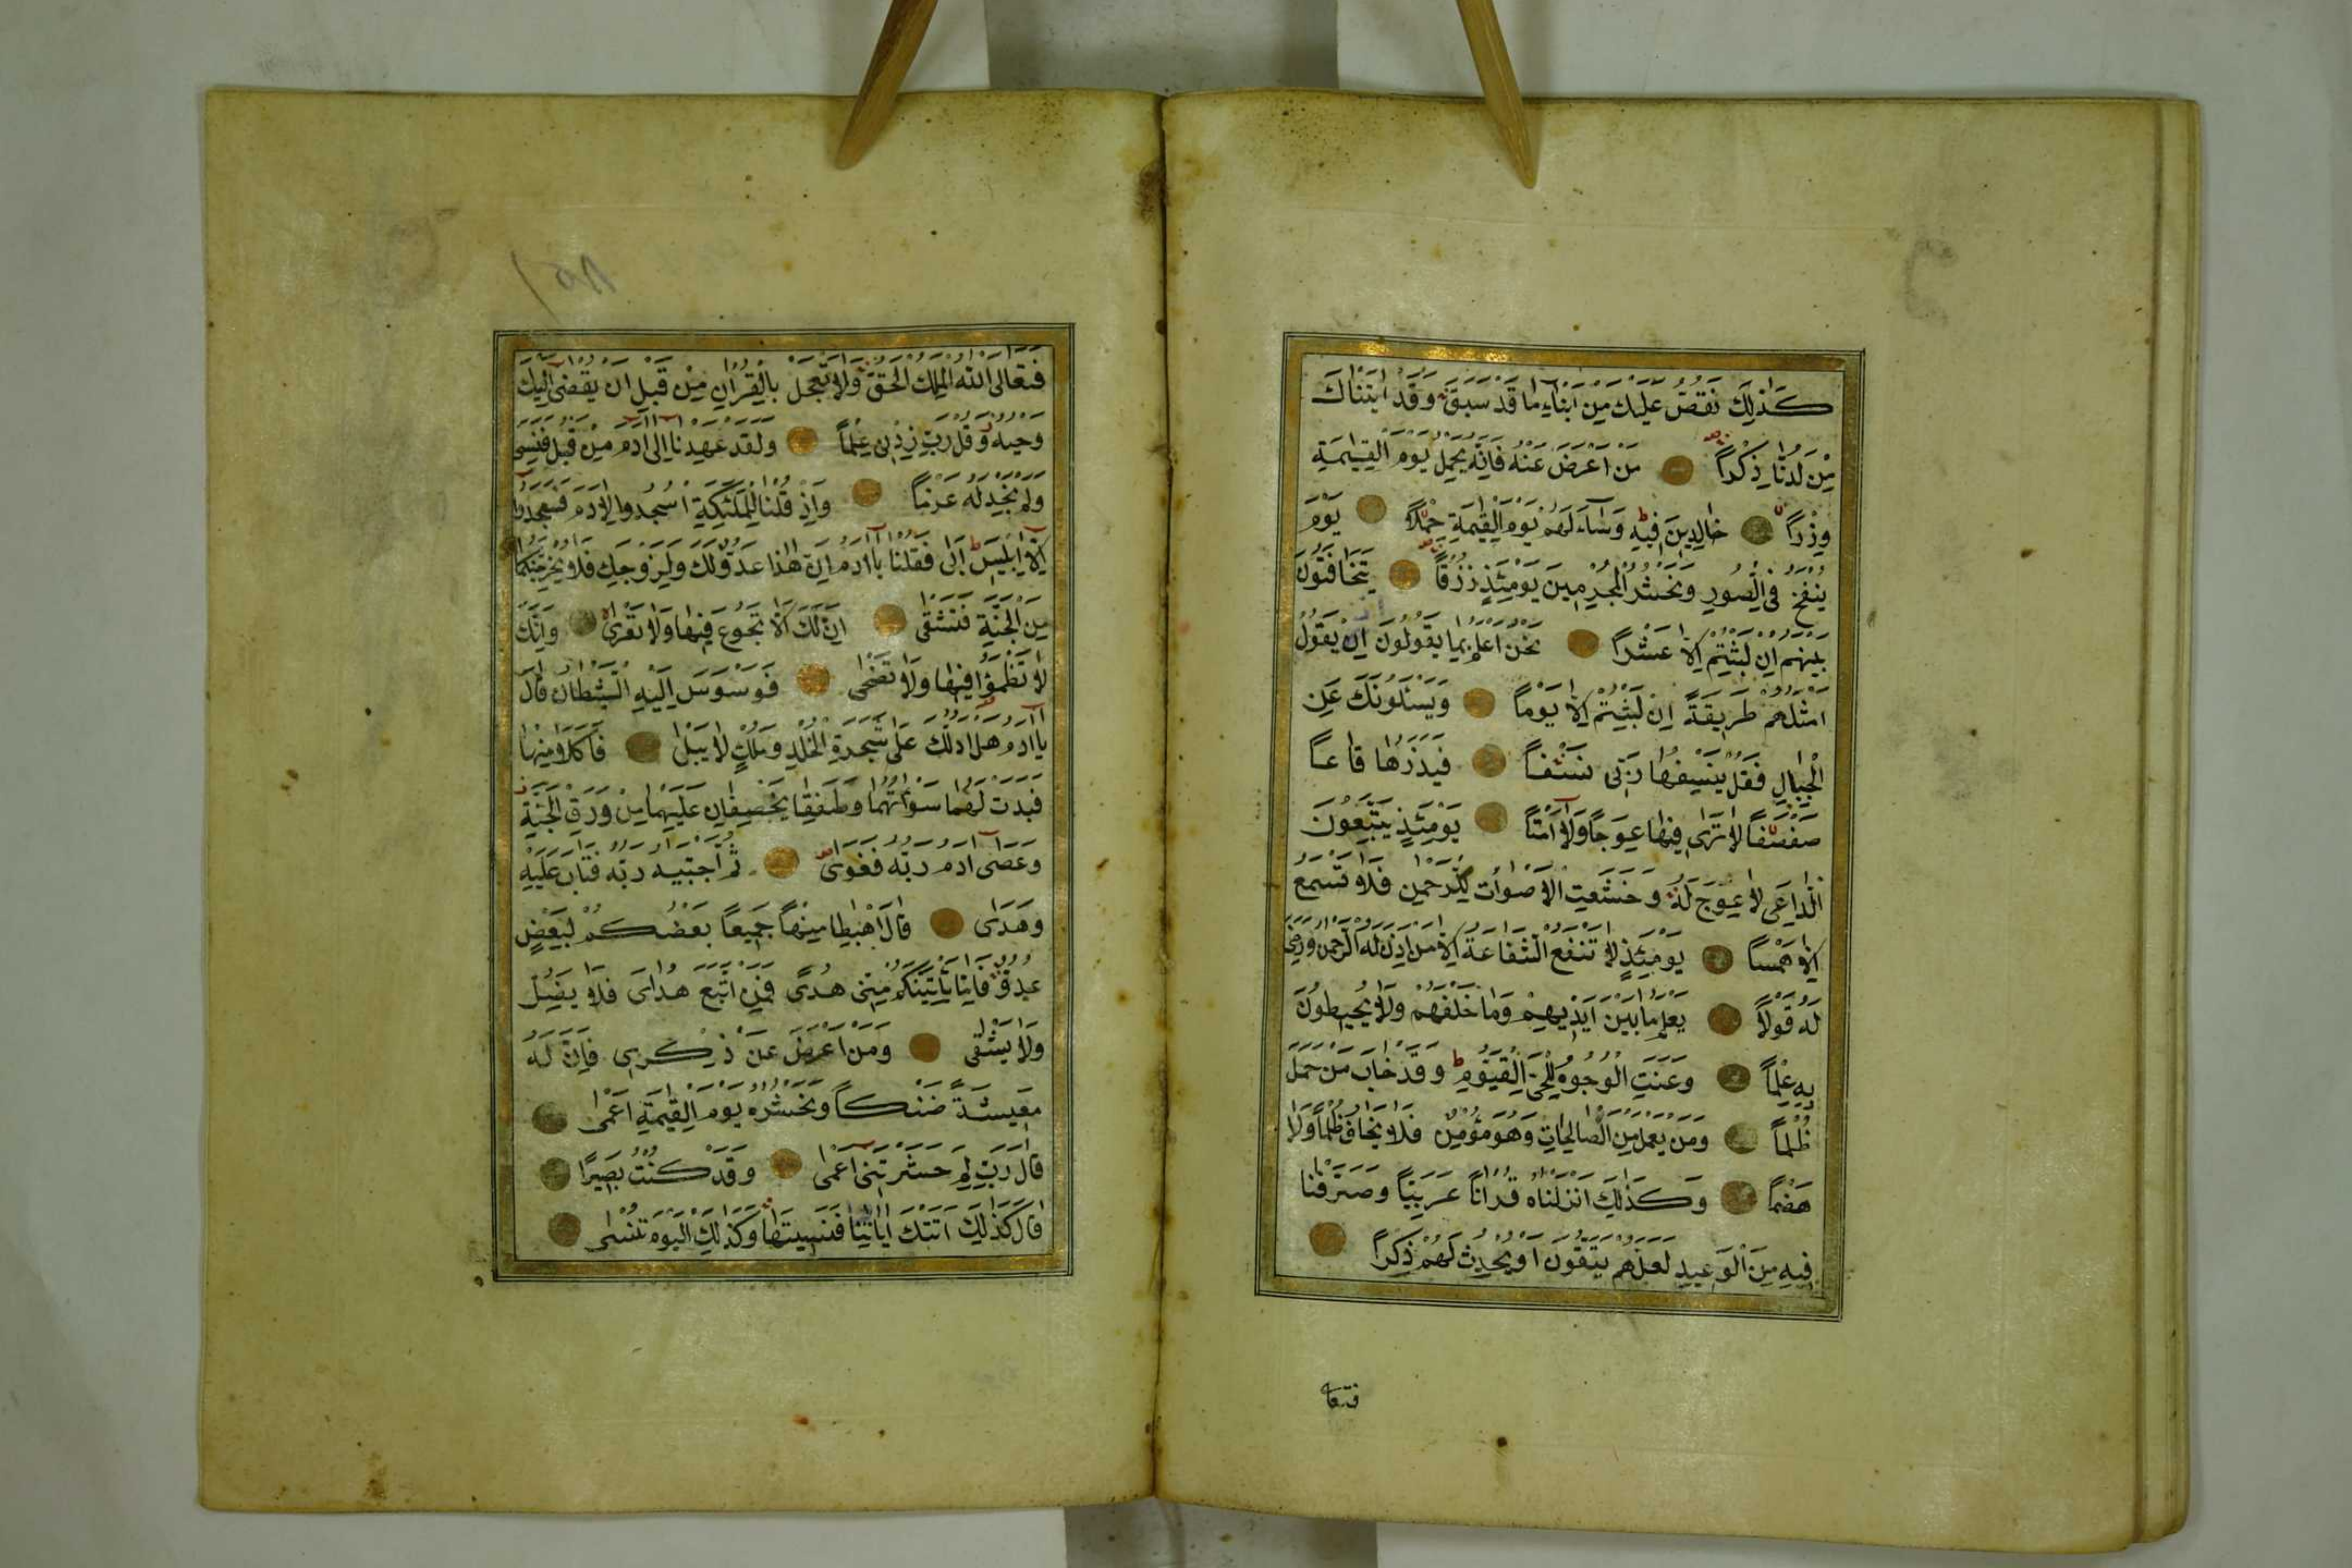 كَذٰلِكَ نَقُصُّ عَلَيْكَ مِنْ اَنْبَاءِ مَا قَدْ سَبَقَ وَقَدْ اٰتَيْنَاكَ
مِنْ لَدُنَّا ذِكْراً مَنْ اَعْرَضَ عَنْهُ فَاِنَّهُ يَحْمِلُ يَوْمَ الْقِيٰمَةِ
وِزْراً خَالِدِينَ فِيهِ وَسَاءَ لَهُمْ يَوْمَ الْقِيٰمَةِ حِمْلاً يَوْمَ
يُنْفَخُ فِي الصُّورِ وَنَحْشُرُ الْمُجْرِمِينَ يَوْمَئِذٍ زُرْقاً يَتَخَافَتُونَ
بَيْنَهُمْ اِنْ لَبِثْتُمْ اِلَّا عَشْراً نَحْنُ اَعْلَمُ بِمَا يَقُولُونَ اِذْ يَقُولُ
اَمْثَلُهُمْ طَرِيقَةً اِنْ لَبِثْتُمْ اِلَّا يَوْماً وَيَسْئَلُونَكَ عَنِ
الْجِبَالِ فَقُلْ يَنْسِفُهَا رَبِّي نَسْفاً فَيَذَرُهَا قَاعاً
صَفْصَفاً لَا تَرٰى فِيهَا عِوَجاً وَلَا اَمْتاً يَوْمَئِذٍ يَتَّبِعُونَ
الدَّاعِيَ لَا عِوَجَ لَهُ وَخَشَعَتِ الْاَصْوَاتُ لِلرَّحْمٰنِ فَلَا تَسْمَعُ
اِلَّا هَمْساً يَوْمَئِذٍ لَا تَنْفَعُ الشَّفَاعَةُ اِلَّا مَنْ اَذِنَ لَهُ الرَّحْمٰنُ وَرَضِيَ
لَهُ قَوْلاً يَعْلَمُ مَا بَيْنَ اَيْدِيهِمْ وَمَا خَلْفَهُمْ وَلَا يُحِيطُونَ
بِهِ عِلْماً وَعَنَتِ الْوُجُوهُ لِلْحَيِّ الْقَيُّومِ وَقَدْ خَابَ مَنْ حَمَلَ
ظُلْماً وَمَنْ يَعْمَلْ مِنَ الصَّالِحَاتِ وَهُوَ مُؤْمِنٌ فَلَا يَخَافُ ظُلْماً وَلَا
هَضْماً وَكَذٰلِكَ اَنْزَلْنَاهُ قُرْاٰناً عَرَبِيّاً وَصَرَّفْنَا
فِيهِ مِنَ الْوَعِيدِ لَعَلَّهُمْ يَتَّقُونَ اَوْ يُحْدِثُ لَهُمْ ذِكْراً
فتعا
فَتَعَالَى اللّٰهُ الْمَلِكُ الْحَقُّ وَلَا تَعْجَلْ بِالْقُرْاٰنِ مِنْ قَبْلِ اَنْ يُقْضٰى اِلَيْكَ
وَحْيُهُ وَقُلْ رَبِّ زِدْنِي عِلْماً وَلَقَدْ عَهِدْنَا اِلٰى اٰدَمَ مِنْ قَبْلُ فَنَسِيَ
وَلَمْ نَجِدْ لَهُ عَزْماً وَاِذْ قُلْنَا لِلْمَلٰئِكَةِ اسْجُدُوا لِاٰدَمَ فَسَجَدُوا
اِلَّا اِبْلِيسَ اَبٰى فَقُلْنَا يَا اٰدَمُ اِنَّ هٰذَا عَدُوٌّ لَكَ وَلِزَوْجِكَ فَلَا يُخْرِجَنَّكُمَا
مِنَ الْجَنَّةِ فَتَشْقٰى اِنَّ لَكَ اَلَّا تَجُوعَ فِيهَا وَلَا تَعْرٰى وَاَنَّكَ
لَا تَظْمَؤُا فِيهَا وَلَا تَضْحٰى فَوَسْوَسَ اِلَيْهِ الشَّيْطَانُ قَالَ
يَا اٰدَمُ هَلْ اَدُلُّكَ عَلٰى شَجَرَةِ الْخُلْدِ وَمُلْكٍ لَا يَبْلٰى فَاَكَلَا مِنْهَا
فَبَدَتْ لَهُمَا سَوْاٰتُهُمَا وَطَفِقَا يَخْصِفَانِ عَلَيْهِمَا مِنْ وَرَقِ الْجَنَّةِ
وَعَصٰى اٰدَمُ رَبَّهُ فَغَوٰى ثُمَّ اجْتَبٰيهُ رَبُّهُ فَتَابَ عَلَيْهِ
وَهَدٰى قَالَ اهْبِطَا مِنْهَا جَمِيعاً بَعْضُكُمْ لِبَعْضٍ
عَدُوٌّ فَاِمَّا يَأْتِيَنَّكُمْ مِنِّي هُدًى فَمَنِ اتَّبَعَ هُدَايَ فَلَا يَضِلُّ
وَلَا يَشْقٰى وَمَنْ اَعْرَضَ عَنْ ذِكْرِي فَاِنَّ لَهُ
مَعِيشَةً ضَنْكاً وَنَحْشُرُهُ يَوْمَ الْقِيٰمَةِ اَعْمٰى
قَالَ رَبِّ لِمَ حَشَرْتَنِي اَعْمٰى وَقَدْ كُنْتُ بَصِيراً
قَالَ كَذٰلِكَ اَتَتْكَ اٰيَاتُنَا فَنَسِيتَهَا وَكَذٰلِكَ الْيَوْمَ تُنْسٰى